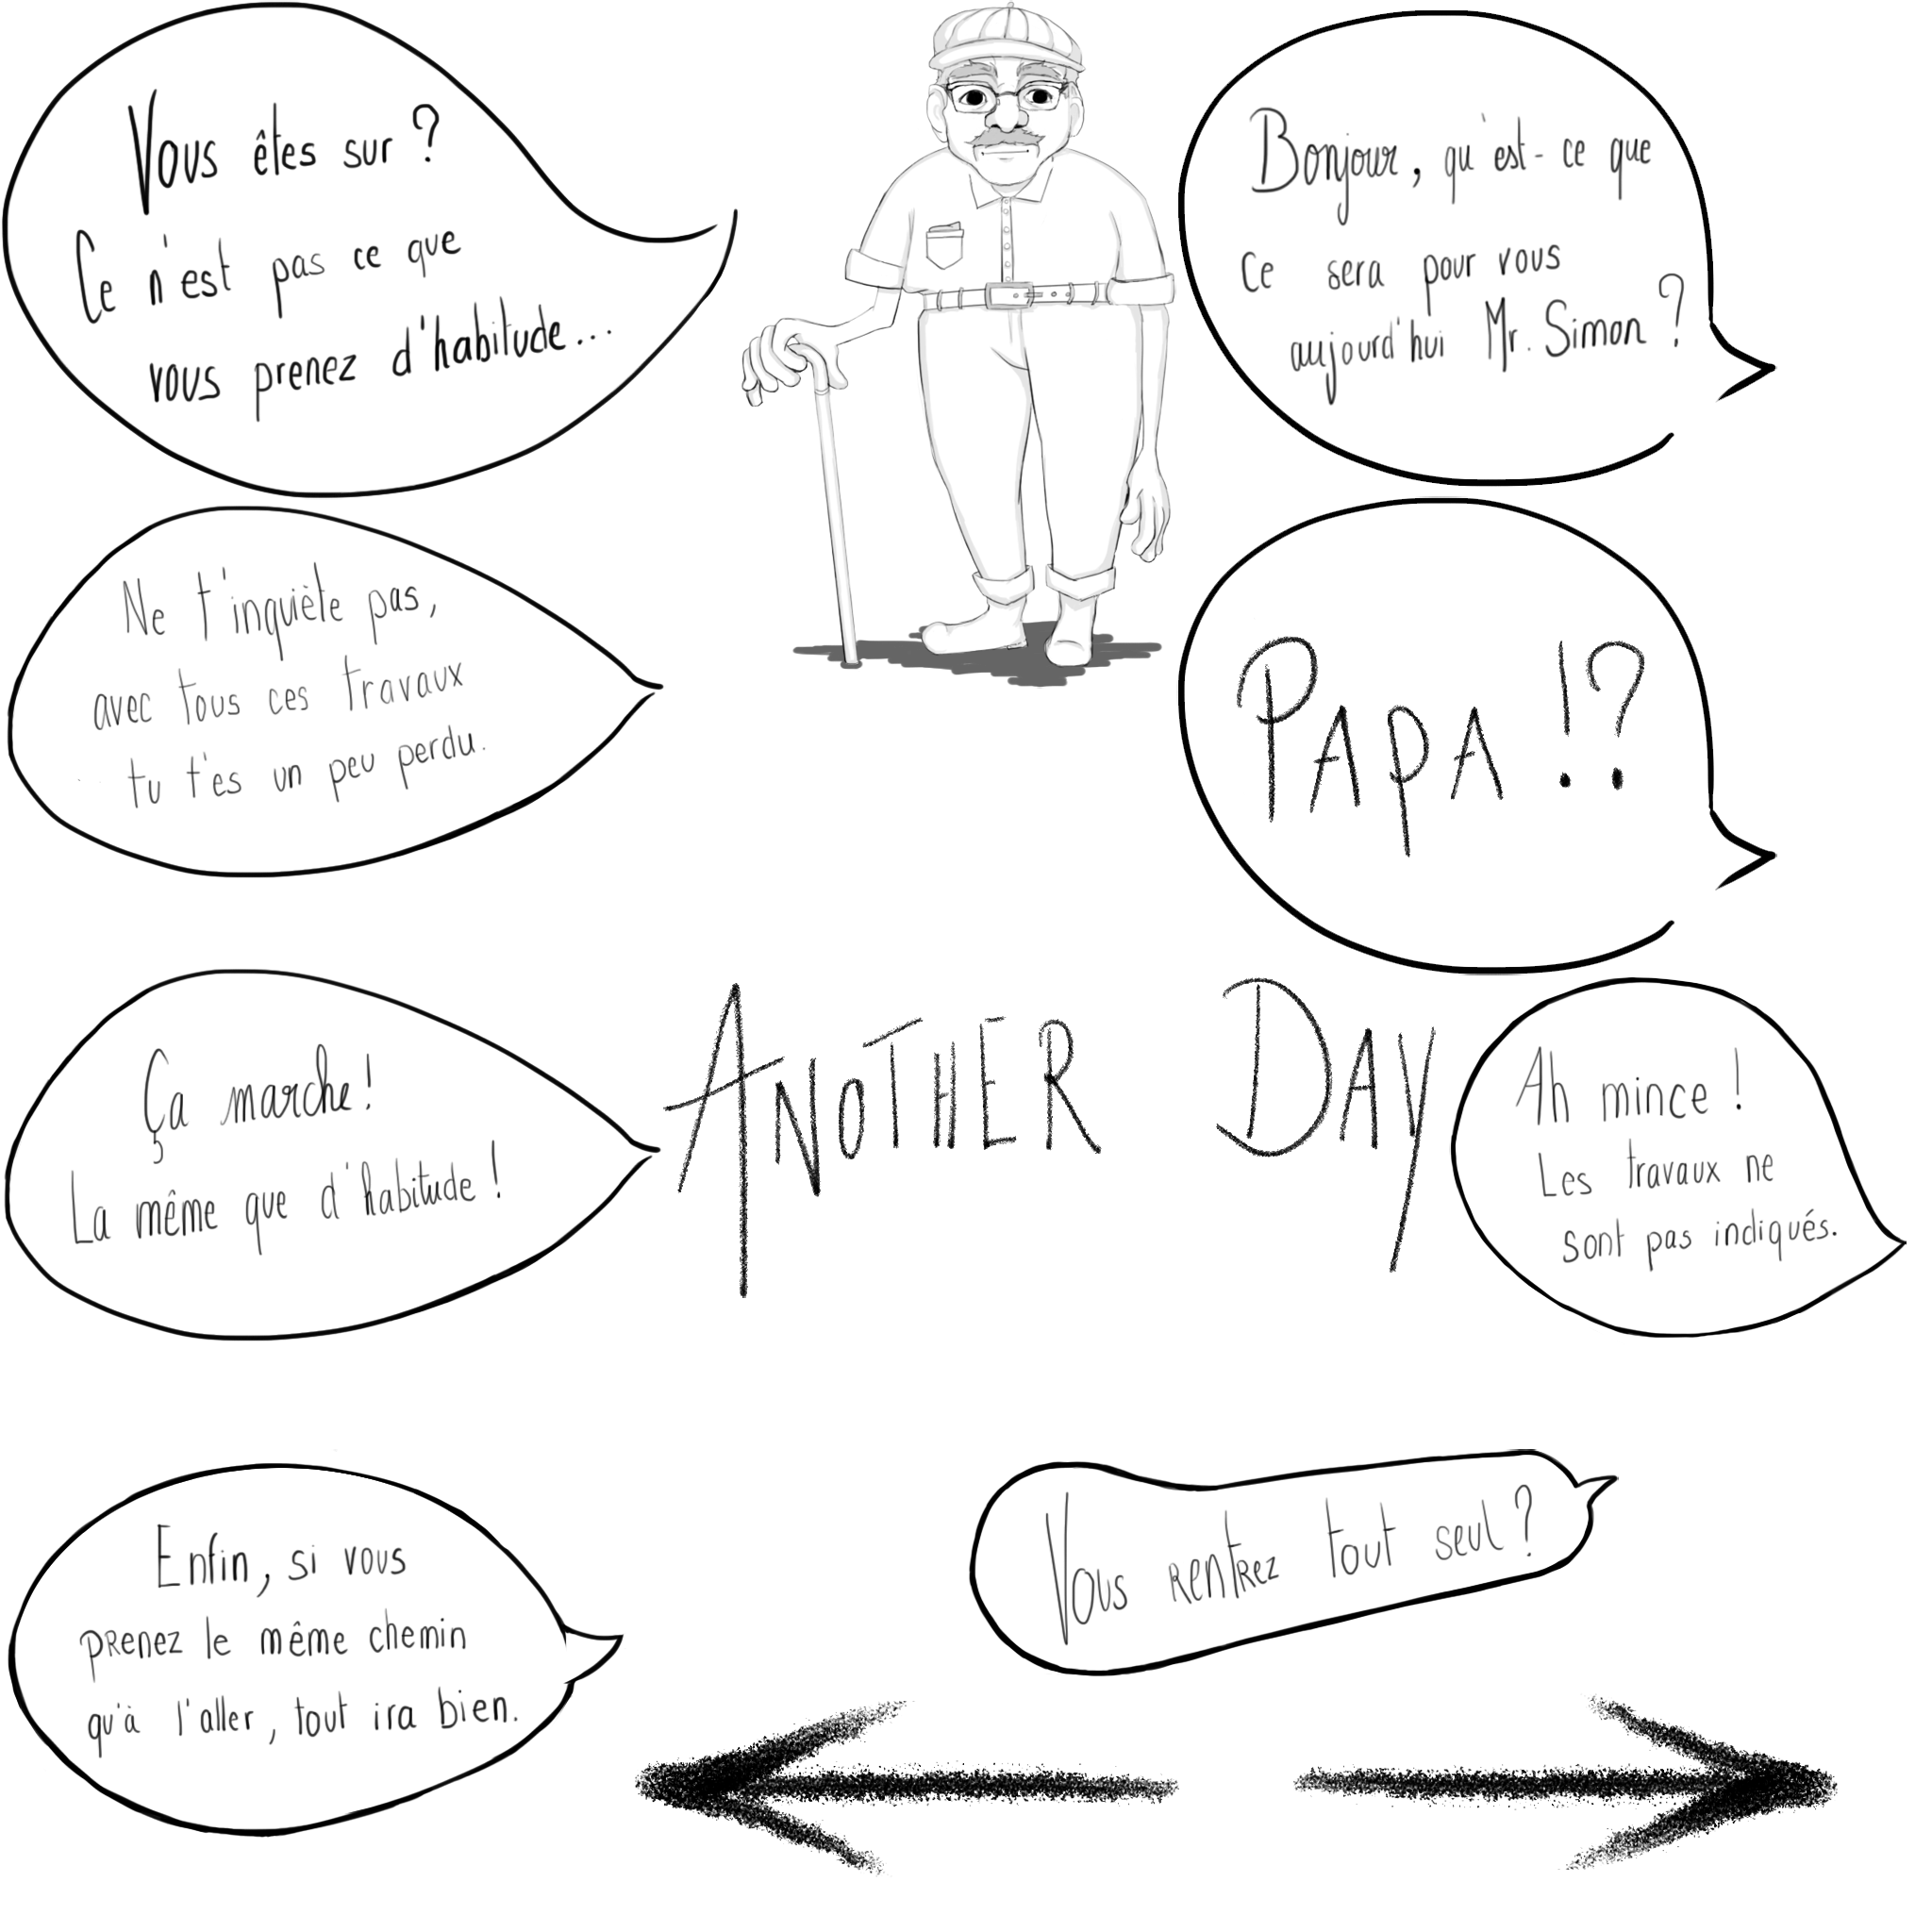 Vous êtes sur ?
Ce n'est pas ce que
vous prenez d'habitude...
Bonjour, qu'est-ce que
ce sera pour vous
aujourd'hui Mr. Simon ?
Ne t'inquiète pas,
avec tous ces travaux
tu t'es un peu perdu.
PAPA !?
Ça marche !
La même que d'habitude !
ANOTHER DAY
Ah mince !
Les travaux ne
sont pas indiqués.
Enfin, si vous
prenez le même chemin
qu'à l'aller, tout ira bien.
Vous rentrez tout seul ?